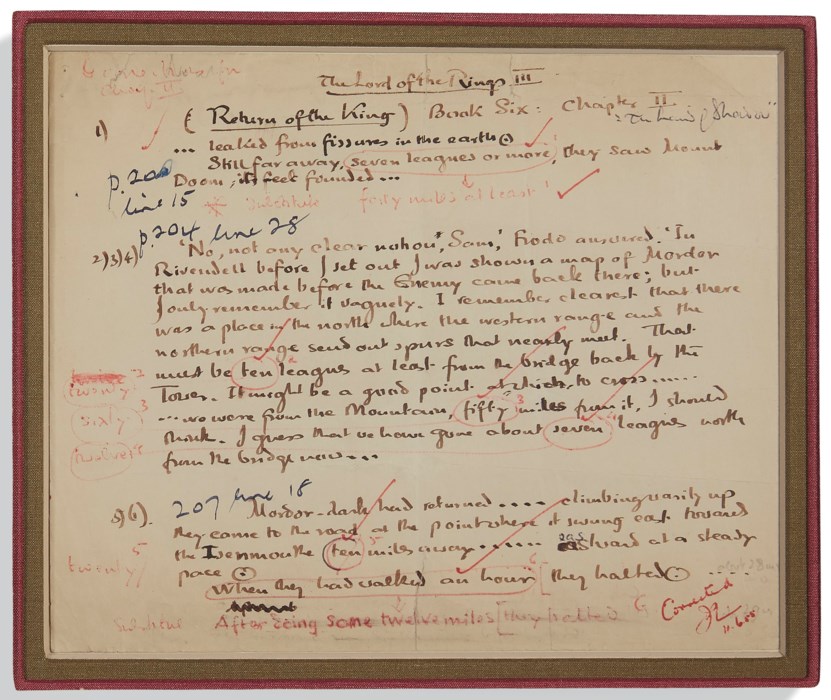 The Lord of the Rings III
Chap. II
(Return of the King) Book Six: Chapter II
1)
... leaked from fissures in the earth.
Still far away, seven leagues or more, they saw Mount
p. 200
Doom, its feet founded...
line 15
substitute forty miles at least'
p. 204 line 28
2)3)4) 'No, not any clear notion, Sam,' Frodo answered. 'In
Rivendell before I set out I was shown a map of Mordor
that was made before the Enemy came back there; but
I only remember it vaguely. I remember clearest that there
was a place in the north where the western range and the
northern range send out spurs that nearly meet. That
must be ten 2 leagues at least from the bridge back by the
twenty 2
Tower. It might be a good point at which to cross......
sixty 3
... we were from the Mountain, fifty 3 miles from it, I should
think. I guess that we have gone about seven 4 leagues north
twelve 4
from the bridge now...
5)6). 207 line 18
Mordor-dark had returned .... climbing warily up
they came to the road at the point where it swung east toward
the Isenmouthe ten 5 miles away....... eastward at a steady
twenty 5
pace.
When they had walked an hour 6 [they halted. ....
Substitute After doing some twelve miles [they halted 6
Corrected